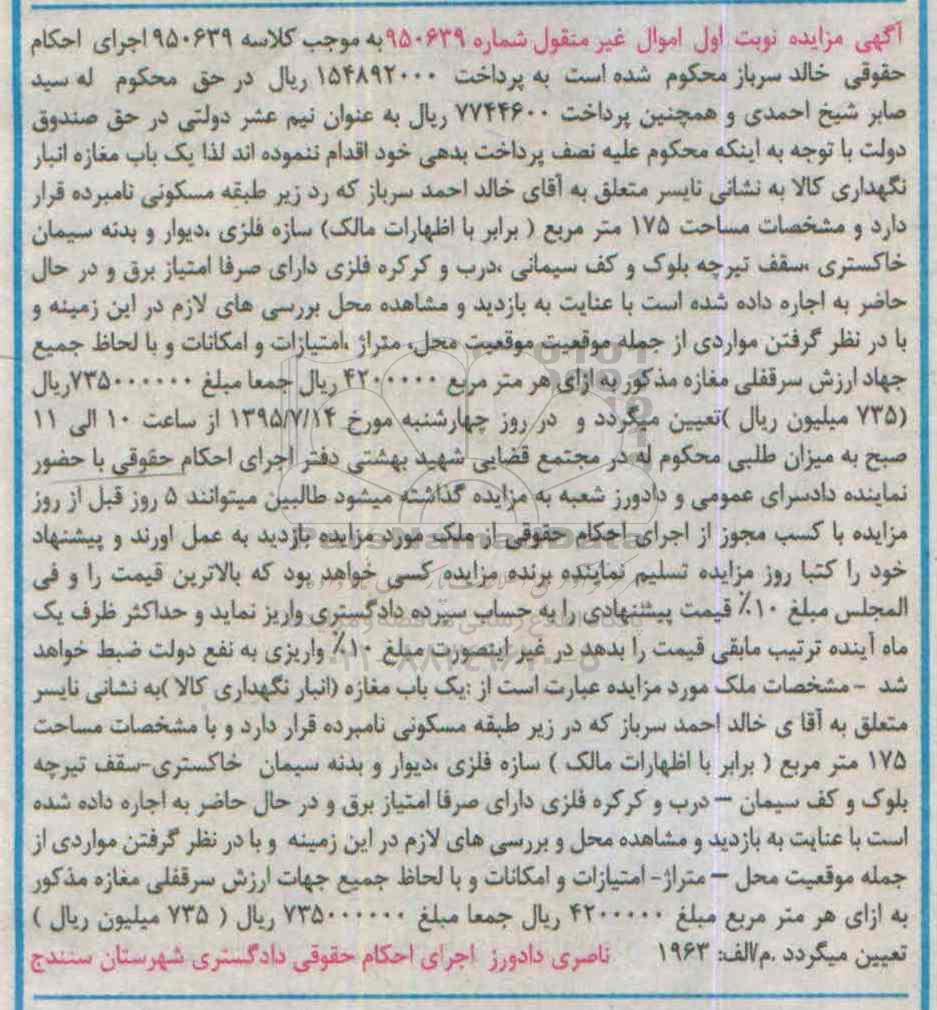 آگهی مزایده نوبت اول اموال غیر منقول شماره ۹۵۰۶۳۹ به موجب کلاسه ۹۵۰۶۳۹ اجرای احکام
حقوقی خالد سرباز محکوم شده است به پرداخت ۱۵۴۸۹۲۰۰۰ ریال در حق محکوم له سید
صابر شیخ احمدی و همچنین پرداخت ۷۷۴۴۶۰۰ ریال به عنوان نیم عشر دولتی در حق صندوق
دولت با توجه به اینکه محکوم علیه نصف پرداخت بدهی خود اقدام ننموده اند لذا یک باب مغازه انبار
نگهداری کالا به نشانی نایسر متعلق به آقای خالد احمد سرباز که رد زیر طبقه مسکونی نامبرده قرار
دارد و مشخصات مساحت ۱۷۵ متر مربع ( برابر با اظهارات مالک) سازه فلزی ،دیوار و بدنه سیمان
خاکستری ،سقف تیرچه بلوک و کف سیمانی ،درب و کرکره فلزی دارای صرفا امتیاز برق و در حال
حاضر به اجاره داده شده است با عنایت به بازدید و مشاهده محل بررسی های لازم در این زمینه و
با در نظر گرفتن مواردی از جمله موقعیت موقعیت محل، متراژ ،امتیازات و امکانات و با لحاظ جمیع
جهاد ارزش سرقفلی مغازه مذکور به ازای هر متر مربع ۴۲۰۰۰۰۰ ریال جمعا مبلغ ۷۳۵۰۰۰۰۰۰ریال
(۷۳۵ میلیون ریال )تعیین میگردد و در روز چهارشنبه مورخ ۱۳۹۵/۷/۱۴ از ساعت ۱۰ الی ۱۱
صبح به میزان طلبی محکوم له در مجتمع قضایی شهید بهشتی دفتر اجرای احکام حقوقی با حضور
نماینده دادسرای عمومی و دادورز شعبه به مزایده گذاشته میشود طالبین میتوانند ۵ روز قبل از روز
مزایده با کسب مجوز از اجرای احکام حقوقی از ملک مورد مزایده بازدید به عمل اورند و پیشنهاد
خود را کتبا روز مزایده تسلیم نماینده برنده مزایده کسی خواهد بود که بالاترین قیمت را و فی
المجلس مبلغ ۱۰٪ قیمت پیشنهادی را به حساب سپرده دادگستری واریز نماید و حداکثر ظرف یک
ماه آینده ترتیب مابقی قیمت را بدهد در غیر اینصورت مبلغ ۱۰٪ واریزی به نفع دولت ضبط خواهد
شد -مشخصات ملک مورد مزایده عبارت است از :یک باب مغازه (انبار نگهداری کالا )به نشانی نایسر
متعلق به آقا ی خالد احمد سرباز که در زیر طبقه مسکونی نامبرده قرار دارد و با مشخصات مساحت
۱۷۵ متر مربع ( برابر با اظهارات مالک ) سازه فلزی ،دیوار و بدنه سیمان خاکستری-سقف تیرچه
بلوک و کف سیمان – درب و کرکره فلزی دارای صرفا امتیاز برق و در حال حاضر به اجاره داده شده
است با عنایت به بازدید و مشاهده محل و بررسی های لازم در این زمینه و با در نظر گرفتن مواردی از
جمله موقعیت محل – متراژ- امتیازات و امکانات و با لحاظ جمیع جهات ارزش سرقفلی مغازه مذکور
به ازای هر متر مربع مبلغ ۴۲۰۰۰۰۰ ریال جمعا مبلغ ۷۳۵۰۰۰۰۰۰ ریال ( ۷۳۵ میلیون ریال )
تعیین میگردد .م/الف: ۱۹۶۳ ناصری دادورز اجرای احکام حقوقی دادگستری شهرستان سنندج